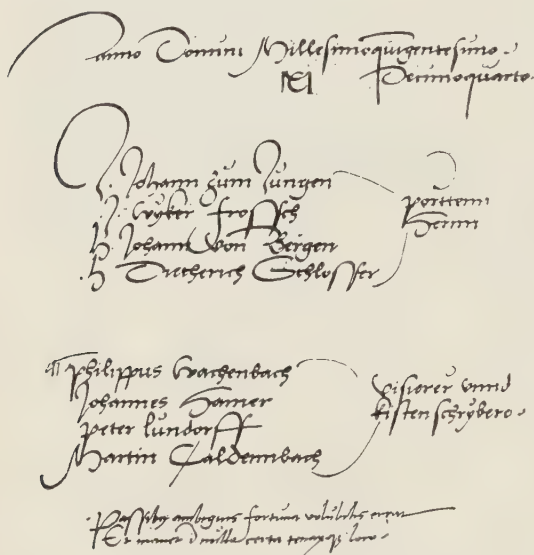 Anno Domini Millesimoquigentesimo
Decimoquarto
H. Johann zum Jungen
H. Wyker Frossch
H Johann von Bergen
H Dietherich Schlosser
porttenn
Herrnn
Philippus Wachenbach
Johannes Hamer
Peter lundorff
Martin Caldennbach
visierer vnnd
kistenschrybere
Passibus ambiguis fortuna volubilis errat
Et manet in nulla certa tenaxque loco